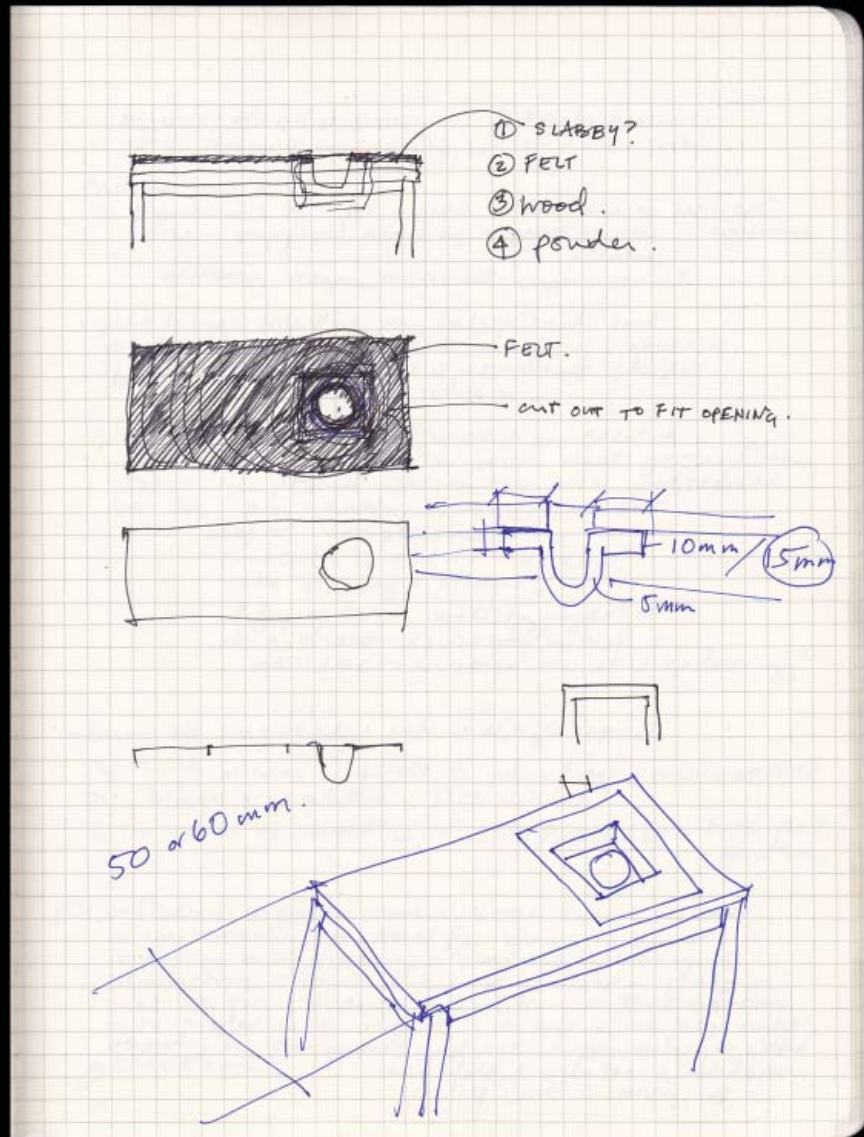 ① SLABBY?
② FELT
③ wood.
④ powder.
FELT.
CUT OUT TO FIT OPENING.
10mm / 15mm
5mm
50 or 60 mm.